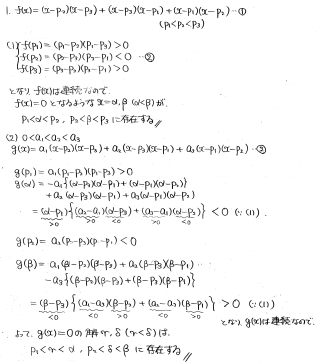 1. f(x)=(x-p₂)(x-p₃)+(x-p₃)(x-p₁)+(x-p₁)(x-p₂) …①
(p₁<p₂<p₃)
(1) f(p₁)=(p₁-p₂)(p₁-p₃)>0
f(p₂)=(p₂-p₃)(p₂-p₁)<0 …②
f(p₃)=(p₃-p₂)(p₃-p₁)>0
となり f(x)は連続なので.
f(x)=0 となるような x=α, β (α<β)が.
p₁<α<p₂, p₂<β<p₃ に存在する
(2) 0<a₁<a₂<a₃
g(x)=a₁(x-p₂)(x-p₃)+a₂(x-p₃)(x-p₁)+a₃(x-p₁)(x-p₂) …③
g(p₁)=a₁(p₁-p₂)(p₁-p₃)>0
g(α)=-a₁{(α-p₃)(α-p₁)+(α-p₁)(α-p₂)}
+a₂(α-p₃)(α-p₁)+a₃(α-p₁)(α-p₂)
=(α-p₁){(a₂-a₁)(α-p₃)+(a₃-a₁)(α-p₂)}<0 (∵(1)).
>0 >0 <0 >0 <0
g(p₂)=a₂(p₂-p₃)(p₂-p₁)<0
g(β)=a₁(β-p₂)(β-p₃)+a₂(β-p₃)(β-p₁)
-a₃{(β-p₂)(β-p₃)+(β-p₃)(β-p₁)}
=(β-p₃){(a₁-a₃)(β-p₂)+(a₂-a₃)(β-p₁)}>0 (∵(1))
<0 <0 >0 <0 >0
となり g(x)は連続なので.
よって, g(x)=0 の解 γ, δ (γ<δ) は.
p₁<γ<α, p₂<δ<β に存在する